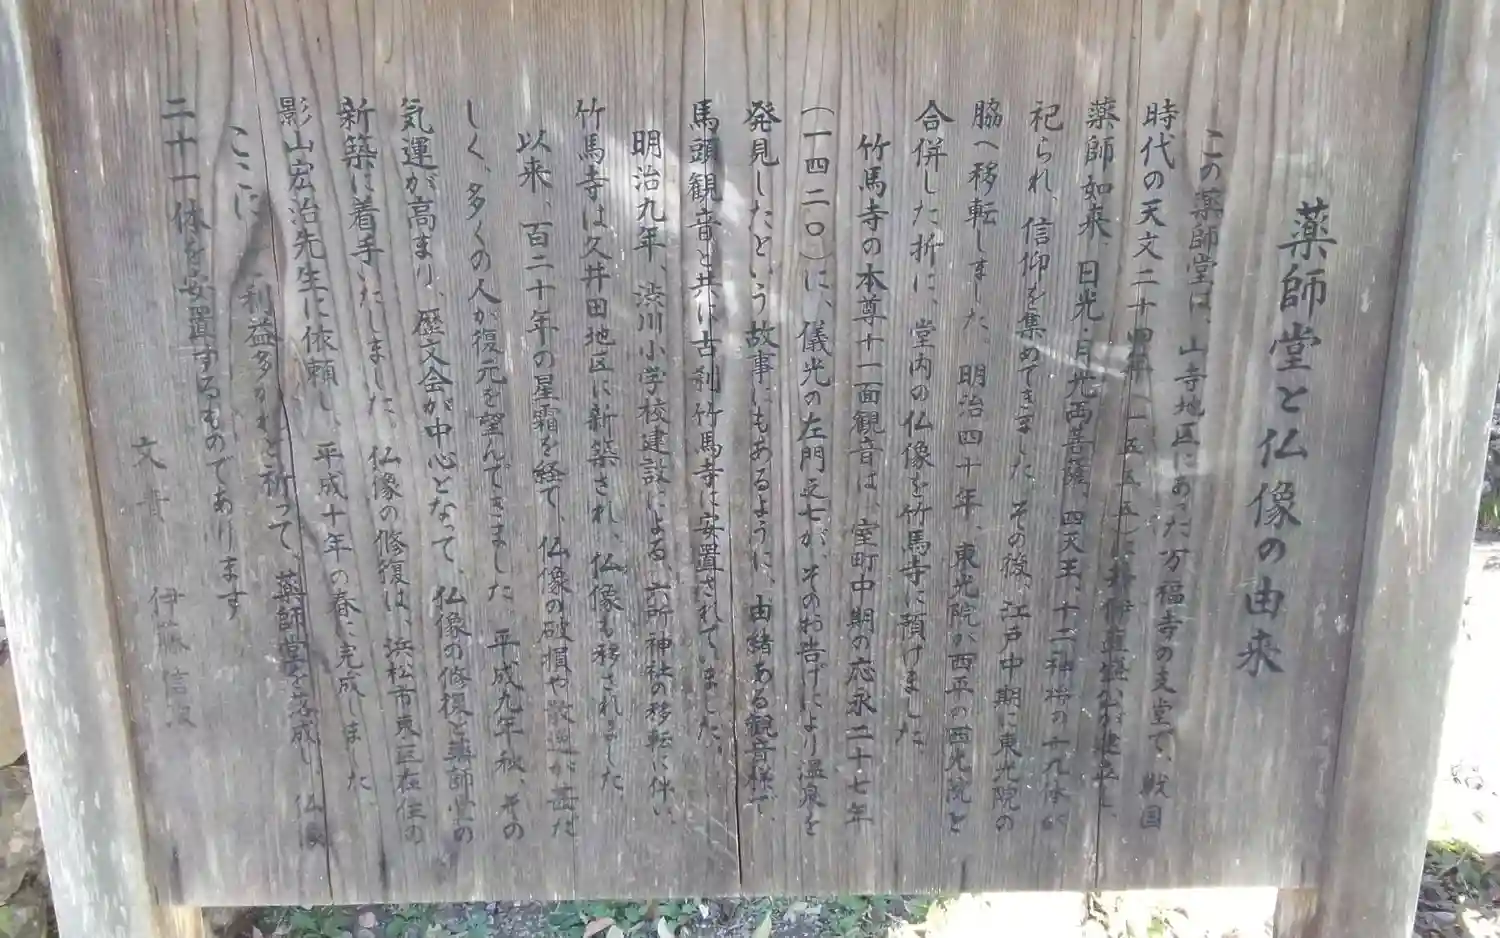 薬師堂と仏像の由来
この薬師堂は、山寺地区にあった万福寺の支堂で、戦国
時代の天文二十四年(一五五五)に井伊直盛公が建立し、
薬師如来、日光・月光両菩薩、四天王、十二神将の十九体が
祀られ、信仰を集めてきました。その後、江戸中期に東光院の
脇へ移転しました。明治四十年、東光院が西平の西光院と
合併した折に、堂内の仏像を竹馬寺に預けました
竹馬寺の本尊十一面観音は、室町中期の応永二十七年
(一四二〇)に、儀光の左門之七が、そのお告げにより温泉を
発見したという故事にもあるように、由緒ある観音様で、
馬頭観音と共に古刹竹馬寺に安置されていました。
明治九年、渋川小学校建設による、六所神社の移転に伴い、
竹馬寺は久井田地区に新築され、仏像も移されました。
以来、百二十年の星霜を経て、仏像の破損や散逸が甚だ
しく、多くの人が復元を望んできました。平成九年秋、その
気運が高まり、歴文会が中心となって、仏像の修復と薬師堂の
新築に着手いたしました。仏像の修復は、浜松市東区在住の
影山宏治先生に依頼し、平成十年の春に完成しました。
ここに利益多かれと祈って、薬師堂を落成し、仏像
二十一体を安置するものであります
文責 伊藤信